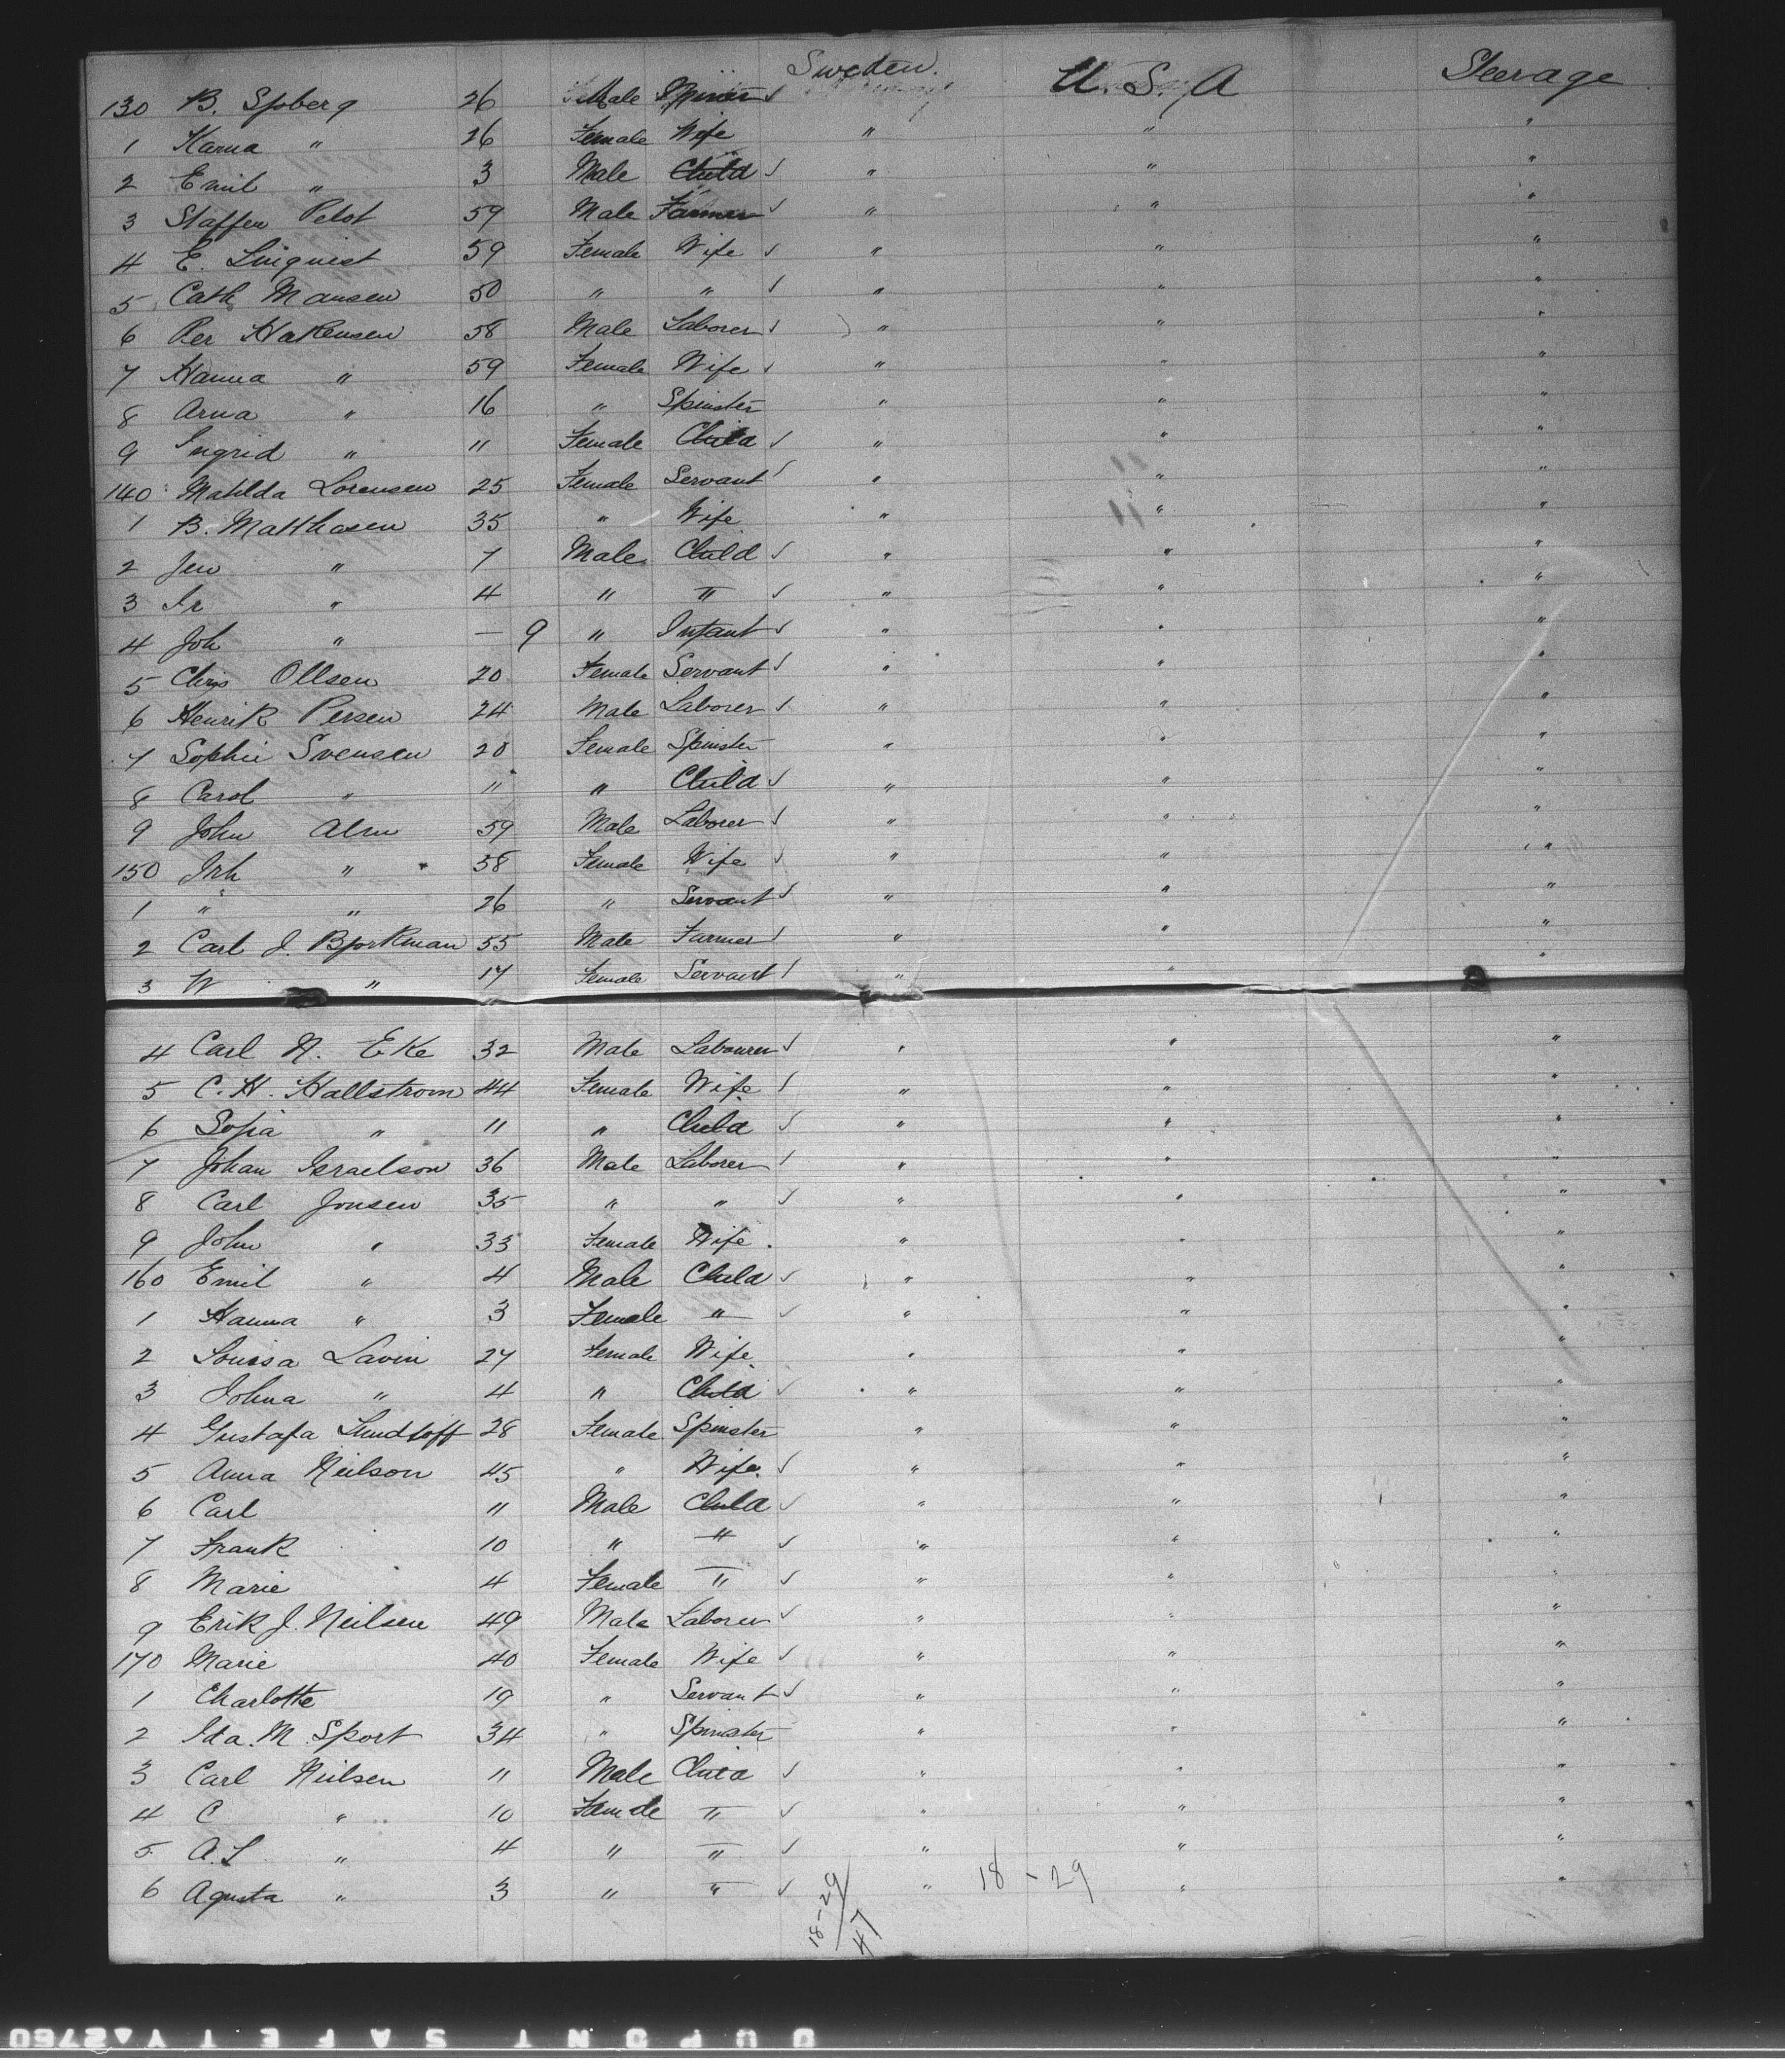 Sweden. U. S. A Steerage
130 B. Spberg 26 Male
1 Hanna " 26 Female Wife " " "
2 Emil " 3 Male Child ✓ " " "
3 Staffen Pelot 59 Male Farmer ✓ " " "
4 E. Linquist 59 Female Wife ✓ " " "
5 Cath Mansen 50 " " ✓ " " "
6 Per Hakensen 58 Male Laborer ✓ " " "
7 Hanna " 59 Female Wife ✓ " " "
8 Anna " 16 " Spinster " " "
9 Ingrid " 11 Female Child ✓ " " "
140 Matilda Lorensen 25 Female Servant ✓ " " "
1 B. Matthasen 35 " Wife " " "
2 Jen " 7 Male Child ✓ " " "
3 Ir " 4 " " ✓ " " "
4 Joh " — 9 " Infant ✓ " " "
5 Chris Ollsen 20 Female Servant ✓ " " "
6 Henrik Persen 24 Male Laborer ✓ " " "
7 Sophie Svensen 20 Female Spinster " " "
8 Carol " 11 " Child ✓ " " "
9 John Alm 59 Male Laborer ✓ " " "
150 Joh " 58 Female Wife ✓ " " "
1 " " 26 " Servant ✓ " " "
2 Carl J. Bjorkman 55 Male Farmer ✓ " " "
3 W " 17 Female Servant ✓ " " "
4 Carl N. Eke 32 Male Labourer ✓ " " "
5 C. H. Hallstrom 44 Female Wife ✓ " " "
6 Sofia " 11 " Child ✓ " " "
7 Johan Israelson 36 Male Laborer ✓ " " "
8 Carl Jonsen 35 " " ✓ " " "
9 John " 33 Female Wife " " "
160 Emil " 4 Male Child ✓ " " "
1 Hanna " 3 Female " ✓ " " "
2 Louisa Lavin 27 Female Wife " " "
3 Johna " 4 " Child ✓ " " "
4 Gustafa Lundloff 28 Female Spinster " " "
5 Anna Neilson 45 " Wife. ✓ " " "
6 Carl 11 Male Child ✓ " " "
7 Frank 10 " " ✓ " " "
8 Marie 4 Female " ✓ " " "
9 Erik J. Neilsen 49 Male Laborer ✓ " " "
170 Marie 40 Female Wife ✓ " " "
1 Charlotte 19 " Servant ✓ " " "
2 Ida. M Sport 34 " Spinster " " "
3 Carl Neilsen 11 Male Child ✓ " " "
4 C " 10 Female " ✓ " " "
5 A. L " 4 " " ✓ " " "
6 Agusta " 3 " " ✓ " " "
18 - 29
18-29
47
DUPONT SAFETY 2760